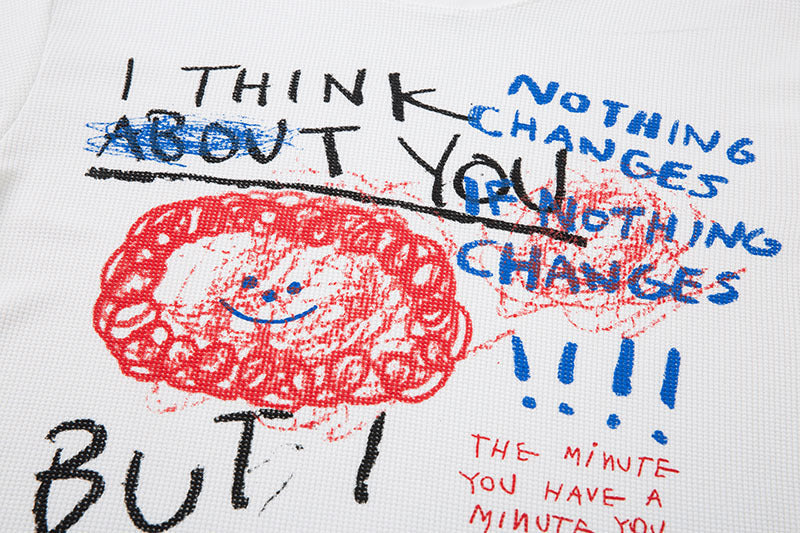 I THINK
ABOUT YOU
BUT I
NOTHING
CHANGES
IF NOTHING
CHANGES
!!!!
THE MINUTE
YOU HAVE A
MINUTE YOU